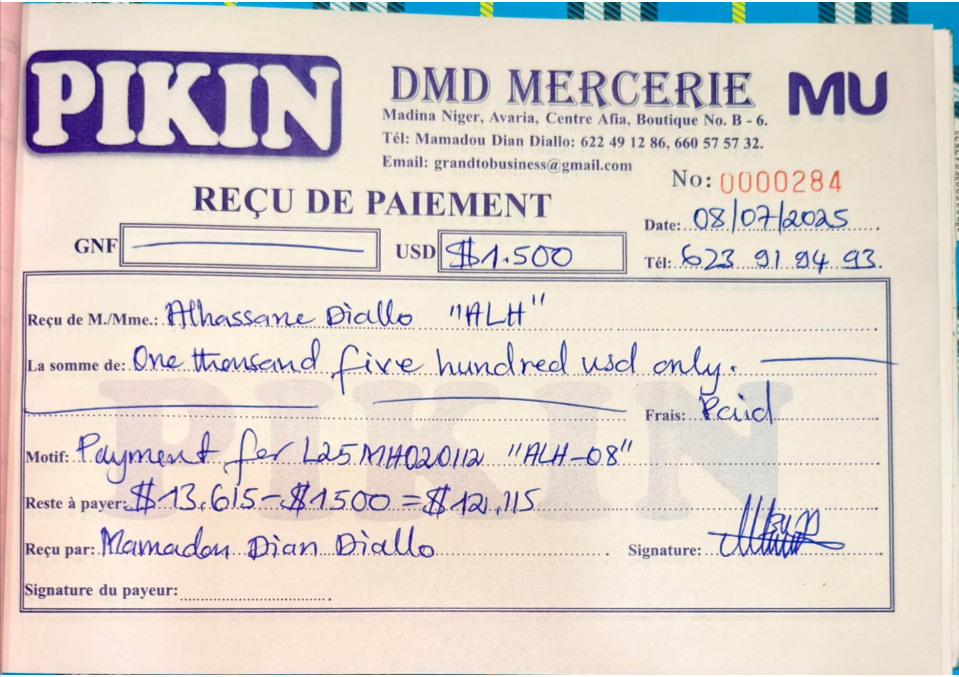 PIKIN
DMD MERCERIE MU
Madina Niger, Avaria, Centre Afia, Boutique No. B - 6.
Tél: Mamadou Dian Diallo: 622 49 12 86, 660 57 57 32.
Email: grandtobusiness@gmail.com
No: 0000284
REÇU DE PAIEMENT
Date: 08/07/2025
GNF USD $1.500
Tél: 623 91 94 93.
Reçu de M./Mme.: Alhassane Diallo "ALH"
La somme de: One thousand five hundred usd only.
Frais: Paid
Motif: Payment for L25MH020112 "ALH-08"
Reste à payer: $13.615-$1500=$12,115
Reçu par: Mamadou Dian Diallo Signature:
Signature du payeur:
PIKIN